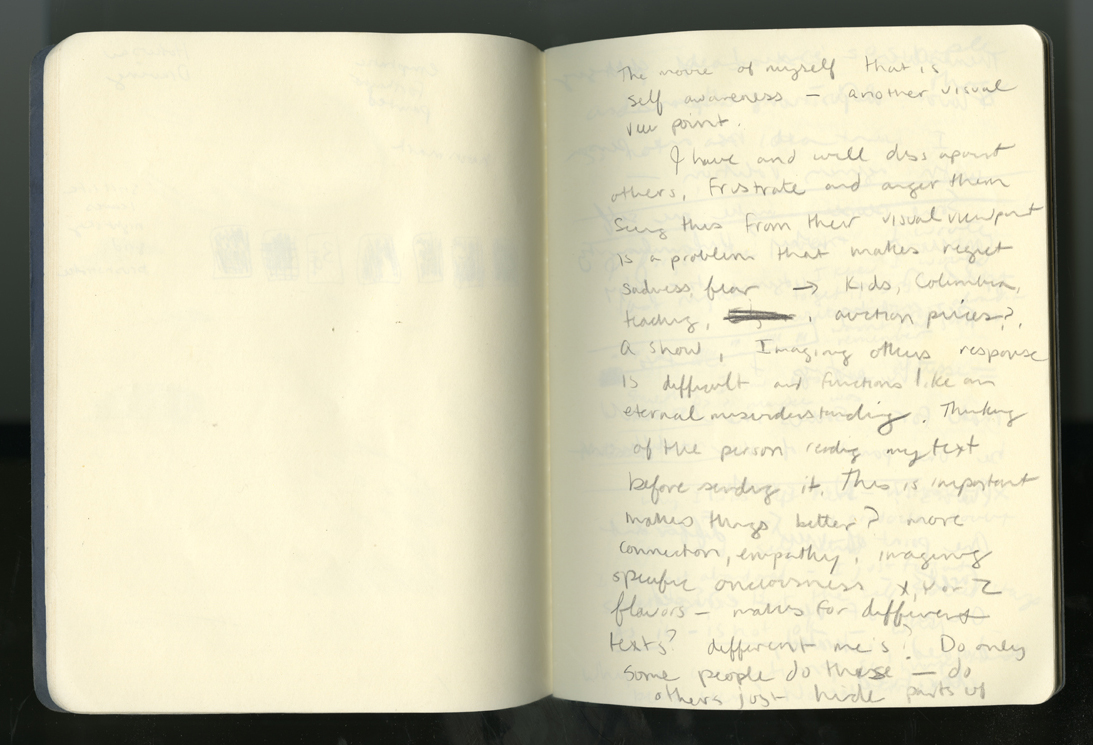 The movie of myself that is
self awareness — another visual
view point.
I have and will diss apoint
others, Frustrate and anger them
Seeing this from their visual viewpoint
is a problem that makes regret
sadness, fear → Kids, Columbia,
teaching, , auction prices?,
A show, Imaging others response
is difficult and functions like an
eternal misunderstanding. Thinking
of the person reading my text
before sending it. This is important
makes things better? more
connection, empathy, imagining
specific X, Y or Z
flavors — makes for different
texts? different me's? Do only
some people do these — do
others just hide parts of